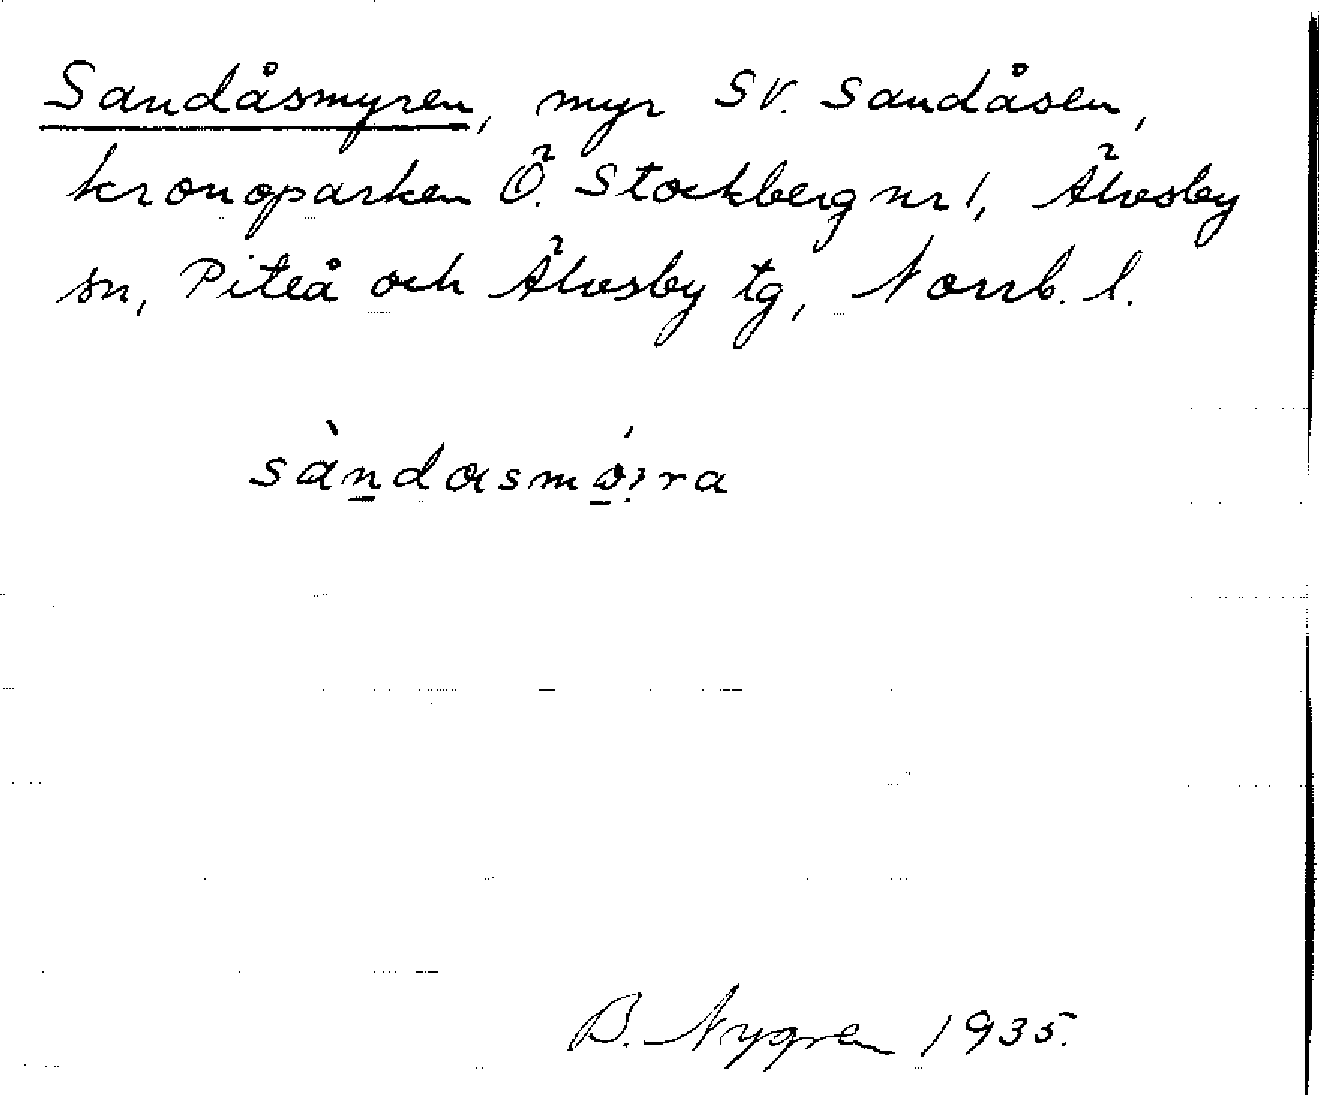 Sandåsmyren, myr SV. Sandåsen,
kronoparken Ö. Stockberg nr 1, Älvsby
sn, Piteå och Älvsby tg, Norrb. l.
sàndasmó̱i̯ra
B. Nygren 1935.